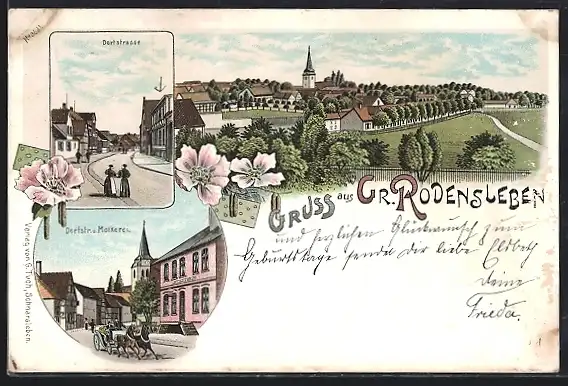 Dorfstrasse
GRUSS aus GR. RODENSLEBEN
und herzlichen Glückwunsch zum
Geburtstage sendet dir liebe Elsbeth
deine
Frieda.
Dorfstr. u. Molkerei.
Verlag von G. Troh,